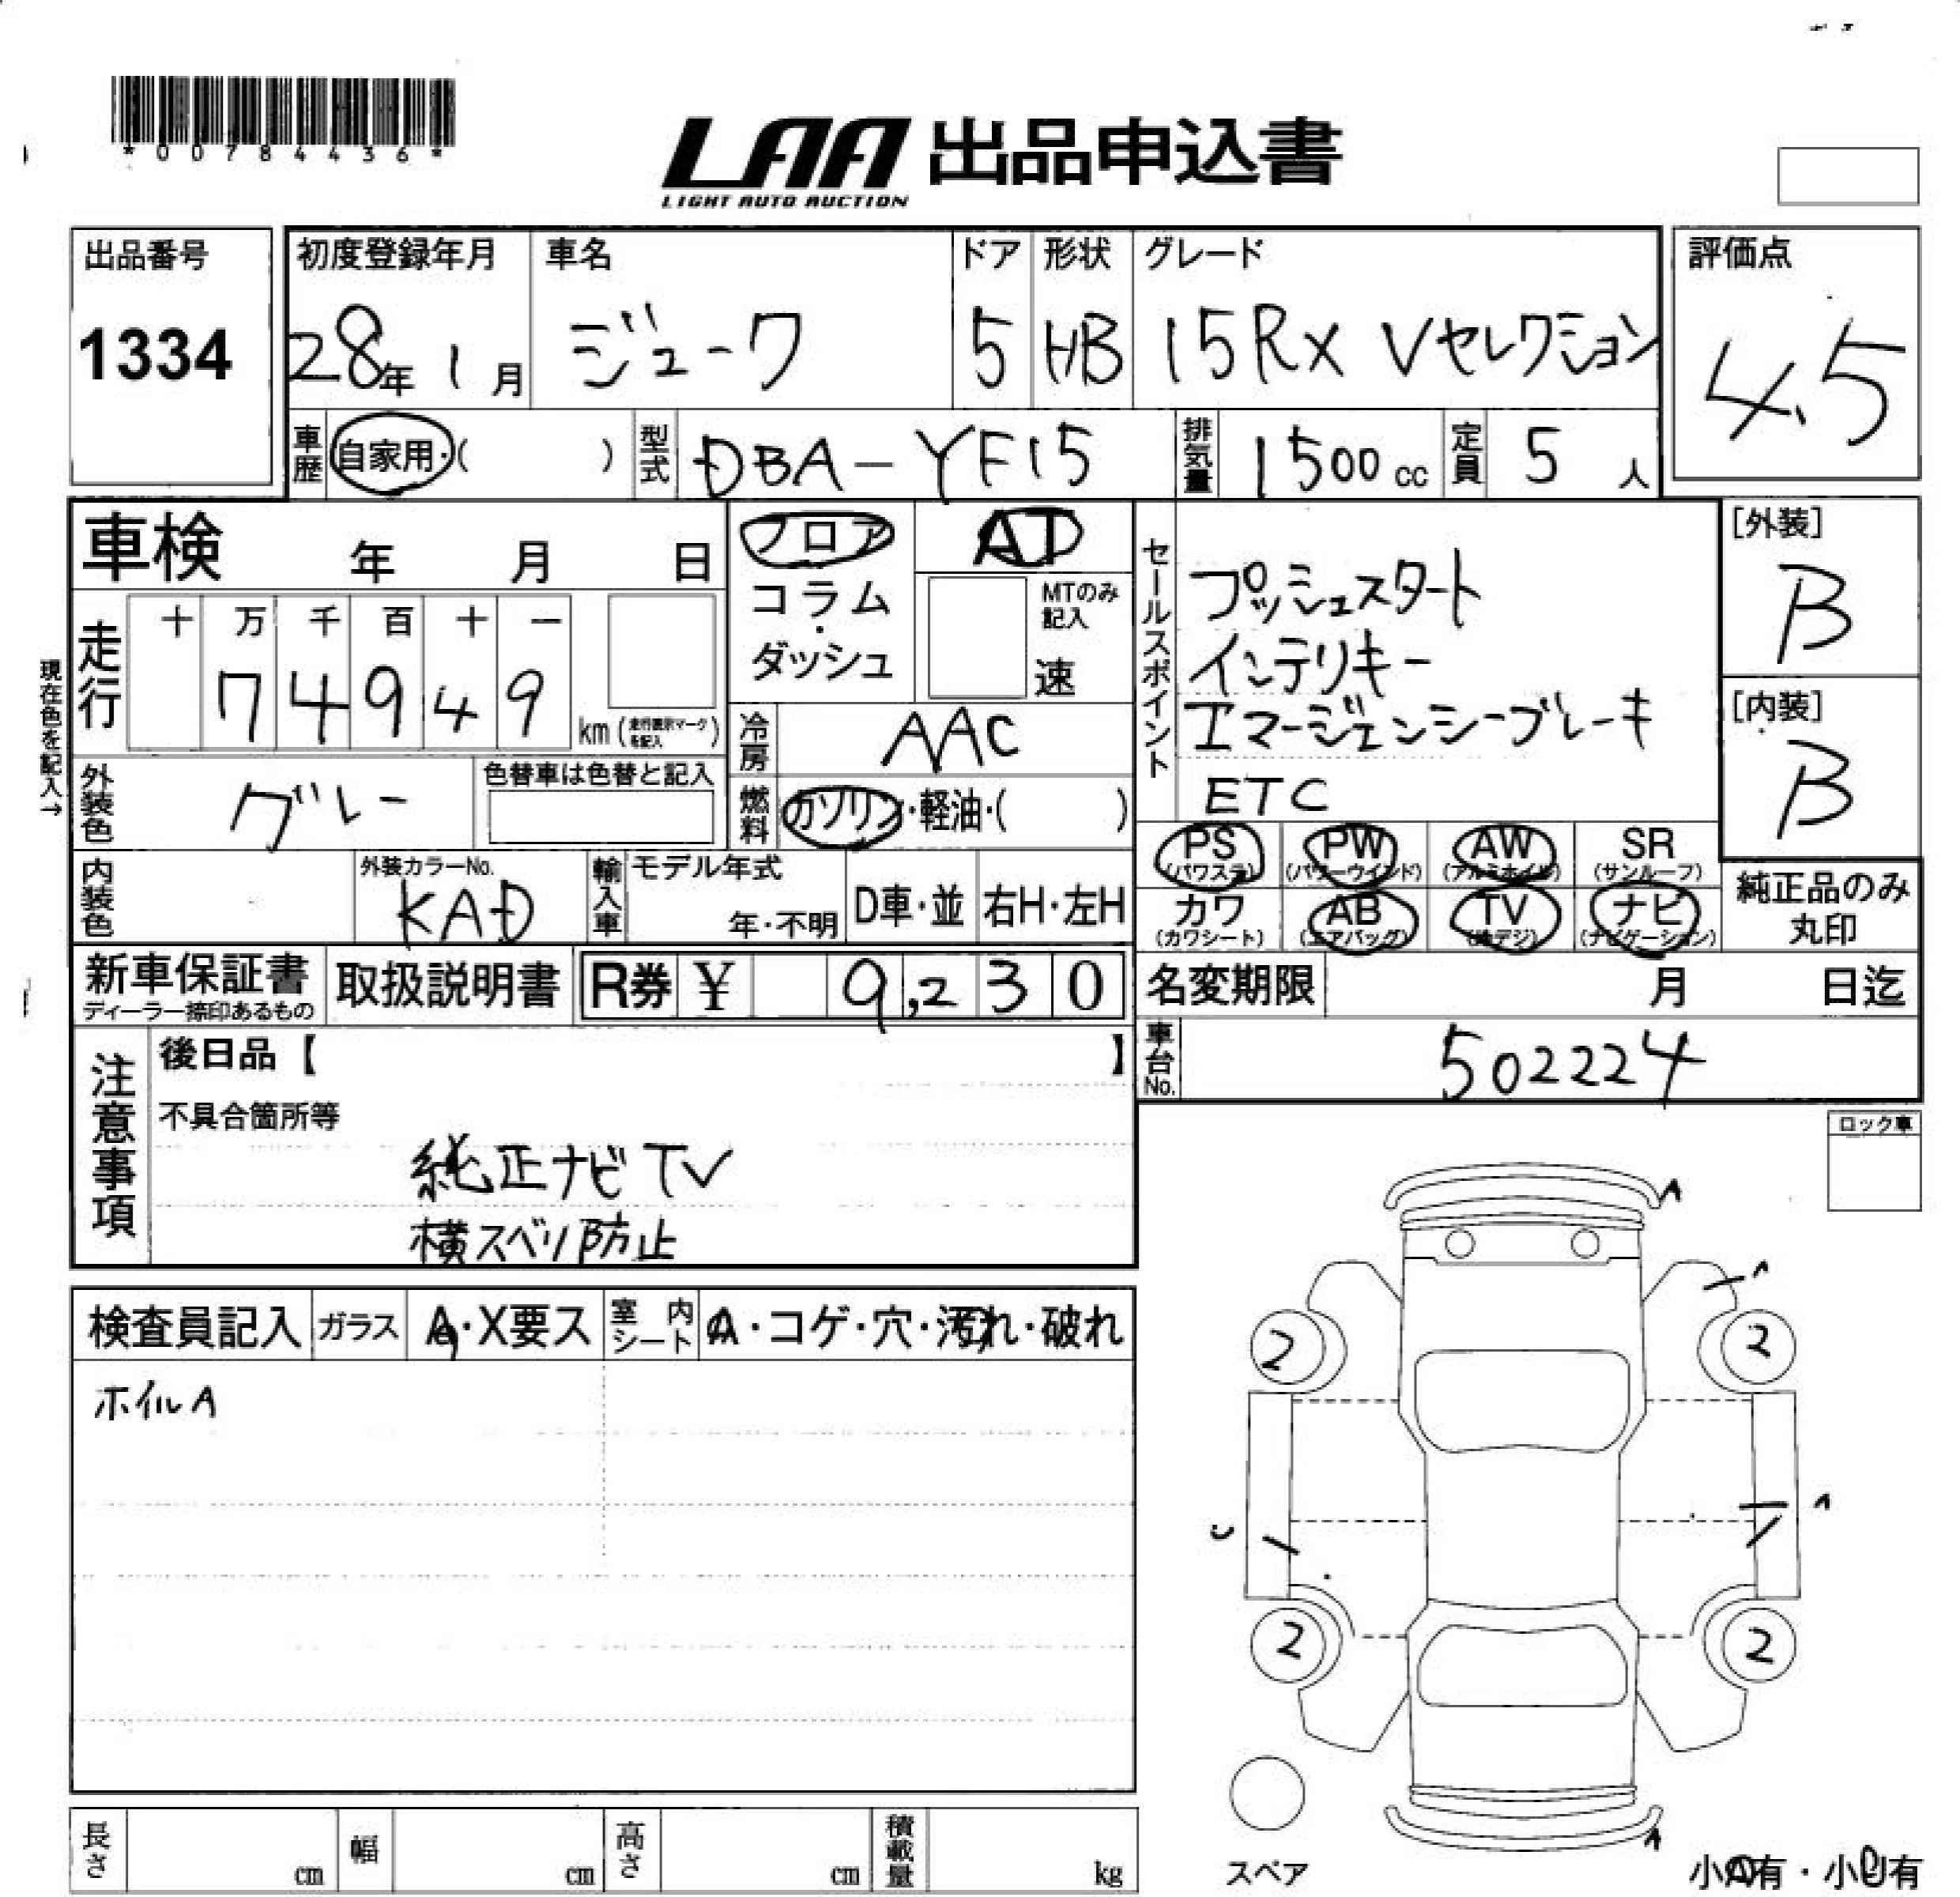 *00784436*
LAA 出品申込書
LIGHT AUTO AUCTION
出品番号
1334
初度登録年月
28年 1月
車名
ジューク
ドア
5
形状
HB
グレード
15RX Vセレクション
評価点
4.5
車歴
自家用・( )
型式
DBA-YF15
排気量
1500cc
定員
5人
車検 年 月 日
現在色を記入→
走行
十 万 千 百 十 一
7 4 9 4 9
km(走行表示マークを記入)
フロア
コラム
・
ダッシュ
AT
MTのみ記入
速
冷房
AAC
燃料
ガソリン・軽油・( )
外装色
グレー
色替車は色替と記入
内装色
外装カラーNo.
KAD
輸入車
モデル年式
年・不明
D車・並
右H・左H
セールスポイント
プッシュスタート
インテリキー
エマージェンシーブレーキ
ETC
[外装]
B
[内装]
B
PS
(パワステ)
PW
(パワーウインド)
AW
(アルミホイル)
SR
(サンルーフ)
カワ
(カワシート)
AB
(エアバッグ)
TV
(地デジ)
ナビ
(ナビゲーション)
純正品のみ
丸印
新車保証書
ディーラー捺印あるもの
取扱説明書
R券 ¥ 9,230
名変期限 月 日迄
車台No.
502224
注意事項
後日品【 】
不具合箇所等
純正ナビTV
横スベリ防止
ロック車
検査員記入
ガラス
A・X要ス
室内シート
A・コゲ・穴・汚れ・破れ
ホイルA
A
A
2
2
A
U
2
2
A
スペア
小A有・小U有
長さ cm
幅 cm
高さ cm
積載量 kg